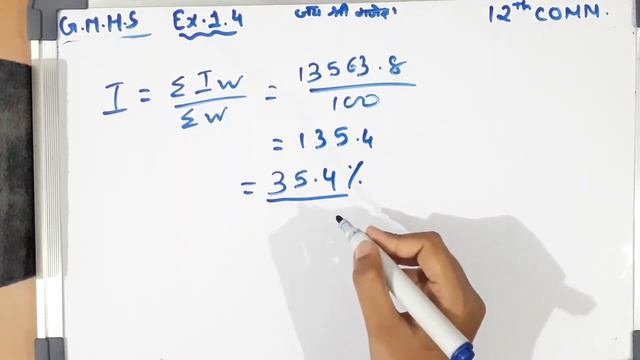 G.M.H.S Ex.1.4 जय श्री गणेश 12th COMM.
I = ΣIW / ΣW = 13563.8 / 100
= 135.4
= 35.4%